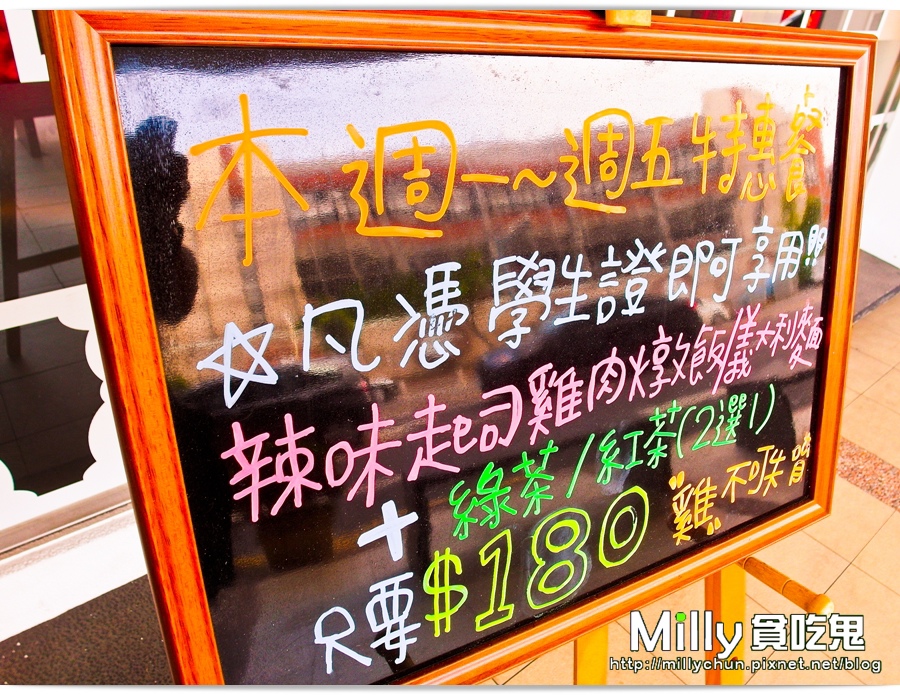 本週一~週五特惠餐
☆凡憑學生證即可享用!!
辣味起司雞肉燉飯義大利麵
+綠茶/紅茶(2選1)
只要$180 "雞"不可失嘗
Milly貪吃鬼
http://millychun.pixnet.net/blog